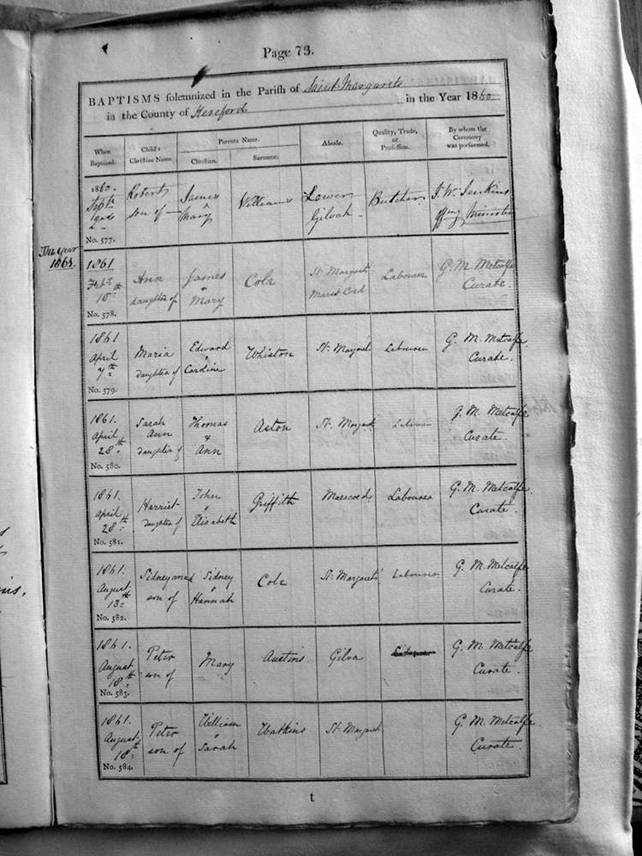 Page 73.
BAPTISMS solemnized in the Parish of Saint Margarets
in the County of Hereford in the Year 1860
When Baptized. Child's Christian Name. Parents Name. Christian. Surname. Abode. Quality, Trade, or Profession. By whom the Ceremony was performed.
1860. Septr Robert son of James & Mary Williams Lower Gilvach Butcher J. W. Jenkins Offg Minister
No. 577.
1861.
1861 Feby 10th Ann daughter of James & Mary Cole St Margarets Labourer G. M. Metcalfe Curate.
No. 578.
1861 April 7th Maria daughter of Edward & Caroline Whiston St Margarets Labourer G. M. Metcalfe Curate.
No. 579.
1861. April 28th Sarah Ann daughter of Thomas & Ann Aston St Margarets Labourer G. M. Metcalfe Curate.
No. 580.
1861. April 28th Harriet daughter of John & Elisabeth Griffith Labourer G. M. Metcalfe Curate.
No. 581.
1861. August 13th son of Sidney & Hannah Cole St Margarets Labourer G. M. Metcalfe Curate.
No. 582.
1861. August 18th Peter son of Mary Austins Gilva G. M. Metcalfe Curate.
No. 583.
1861. August 18th Peter son of William & Sarah Watkins St Margarets G. M. Metcalfe Curate.
No. 584.
t